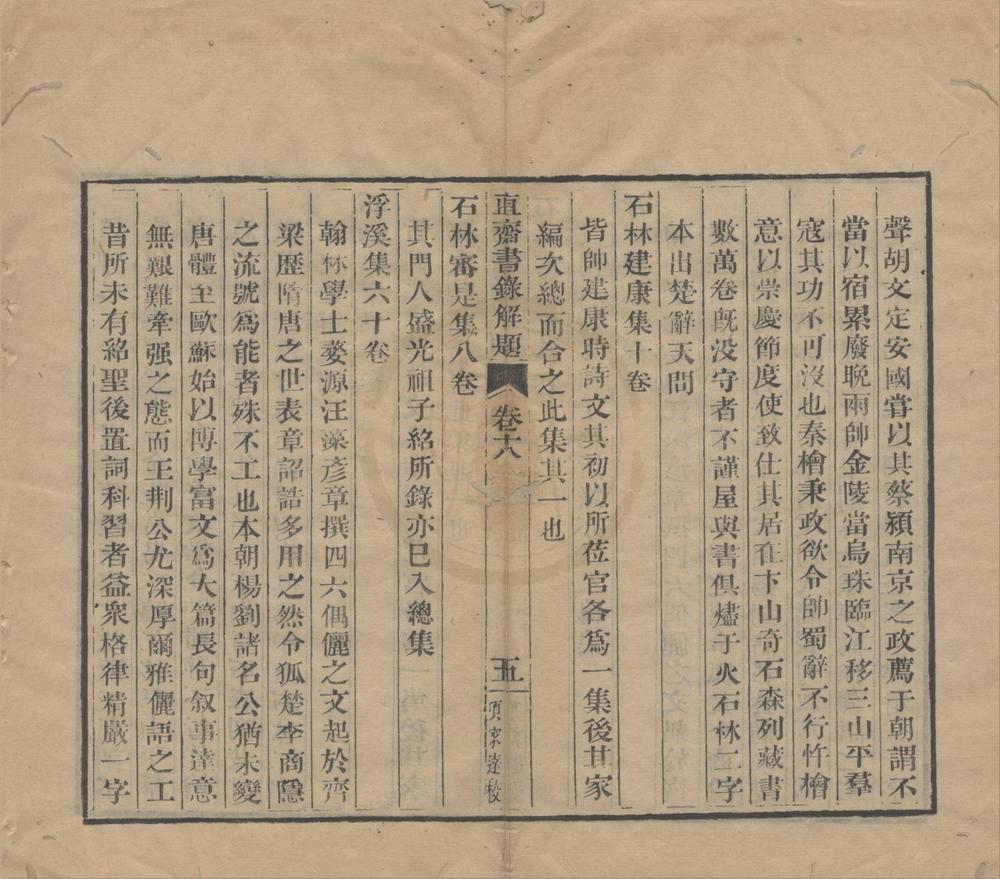 聲胡文定安國嘗以其蔡潁南京之政薦于朝謂不
當以宿累廢晩兩帥金陵當烏珠臨江移三山平羣
寇其功不可沒也秦檜秉政欲令帥蜀辭不行忤檜
意以崇慶節度使致仕其居在卞山奇石森列藏書
數萬卷旣沒守者不謹屋與書俱燼于火石林二字
本出楚辭天問
石林建康集十卷
皆帥建康時詩文其初以所莅官各爲一集後其家
編次總而合之此集其一也
直齋書錄解題
卷十八
五
項家達校
石林審是集八卷
其門人盛光祖子紹所錄亦已入總集
浮溪集六十卷
翰林學士婺源汪藻彥章撰四六偶儷之文起於齊
梁歷隋唐之世表章詔誥多用之然令狐楚李商隱
之流號爲能者殊不工也本朝楊劉諸名公猶未變
唐體至歐蘇始以博學富文爲大篇長句叙事達意
無艱難牽强之態而王荆公尤深厚爾雅儷語之工
昔所未有紹聖後置詞科習者益衆格律精嚴一字